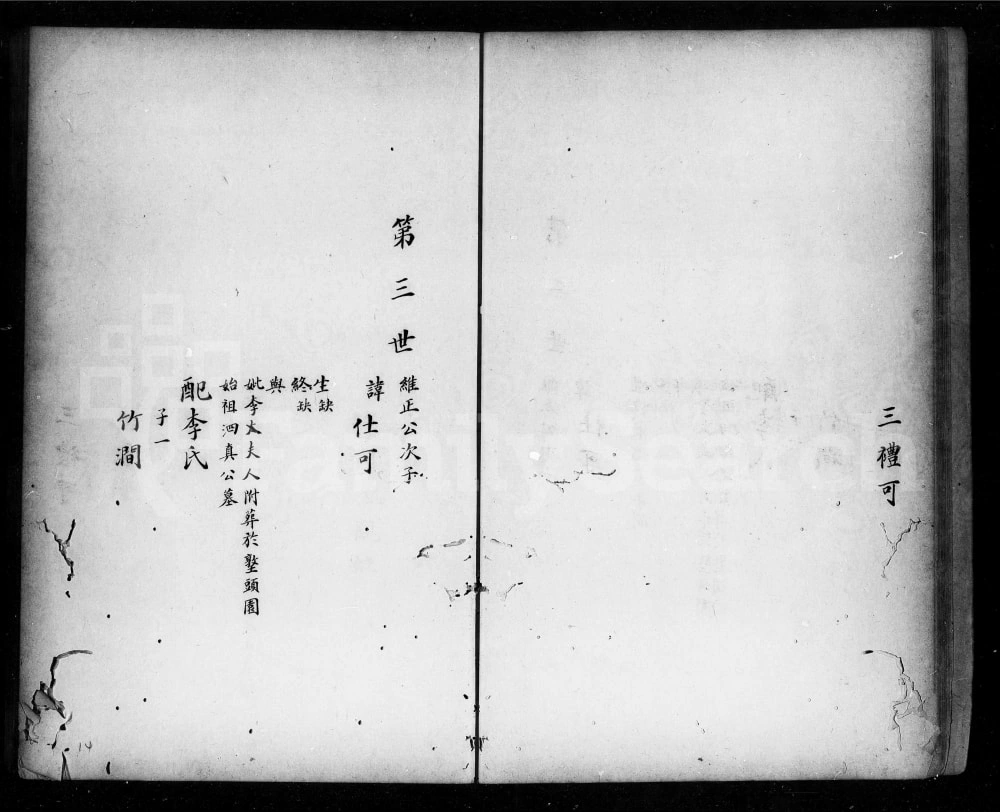 三禮可
第三世
維正公次子
諱仕可
生缺
終缺
與
妣李太夫人附葬於墪頭園
始祖泗真公墓
配李氏
子一
竹澗
14